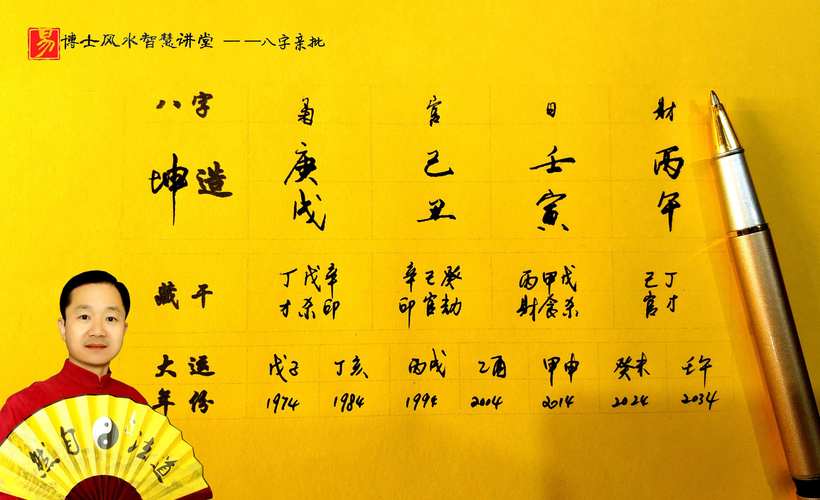 易 博士风水智慧讲堂 ——八字亲批
八字 枭 官 日 財
坤造 庚 己 壬 丙
戌 丑 寅 午
藏干 丁戊辛 辛己癸 丙甲戊 己丁
才杀印 印官劫 财食杀 官才
大运 戊子 丁亥 丙戌 乙酉 甲申 癸未 壬午
年份 1974 1984 1994 2004 2014 2024 2034
然自法道